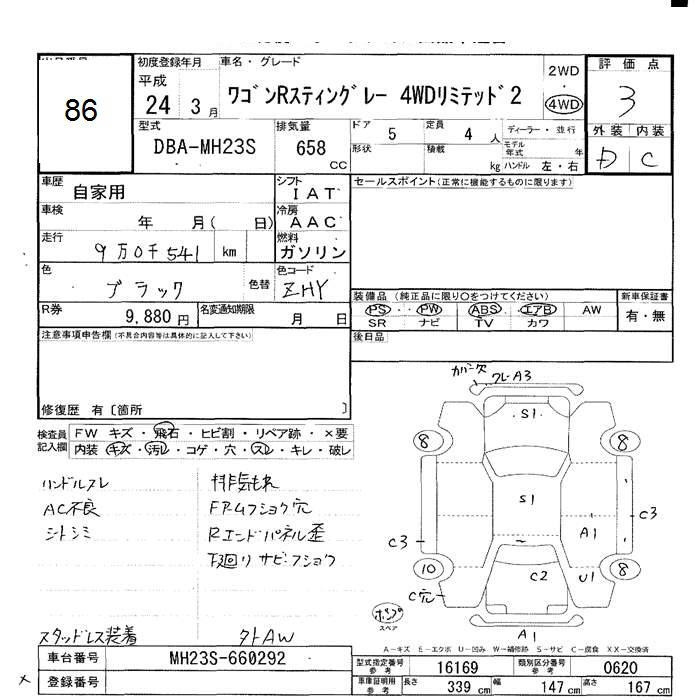 初度登録年月
平成
24年 3月
車名・グレード
ワゴンRスティングレー 4WDリミテッド2
2WD
4WD
評価点
3
外装 内装
D C
86
型式
DBA-MH23S
排気量
658 CC
ドア 5
形状
定員 4人
積載 kg
ディーラー・並行
モデル年式 年
ハンドル 左・右
車歴
自家用
シフト
IAT
セールスポイント(正常に機能するものに限ります)
車検
年 月( 日)
冷房
AAC
走行
9万0千541 km
燃料
ガソリン
色
ブラック
色替
色コード
ZHY
R券
9,880円
名変通知期限
月 日
装備品 (純正品に限り○をつけてください)
PS・ PW ABS・ エアB AW
SR ナビ TV カワ
新車保証書
有・無
注意事項申告欄(不具合内容等は具体的に記入して下さい)
後日品
修復歴 有〔箇所 〕
検査員記入欄
FW キズ・飛石・ヒビ割・リペア跡・×要
内装・キズ・汚レ・コゲ・穴・スレ・キレ・破レ
ハンドルスレ
AC不良
シトシミ
排気もれ
FRムフショク穴
Rエンドパネル歪
下廻りサビ・フショク
スタッドレス装着
タトAW
カバー欠
クレ・A3
S1
8
8
S1
C3
A1
C3
10
8
C2
U1
C穴
ポンプ
スペア
A1
A-キズ E-エクボ U-凹み W-補修跡 S-サビ C-腐食 XX-交換済
車台番号
MH23S-660292
登録番号
型式指定番号 参考
16169
類別区分番号 参考
0620
車庫証明用 参考
長さ 339 cm
幅 147 cm
高さ 167 cm